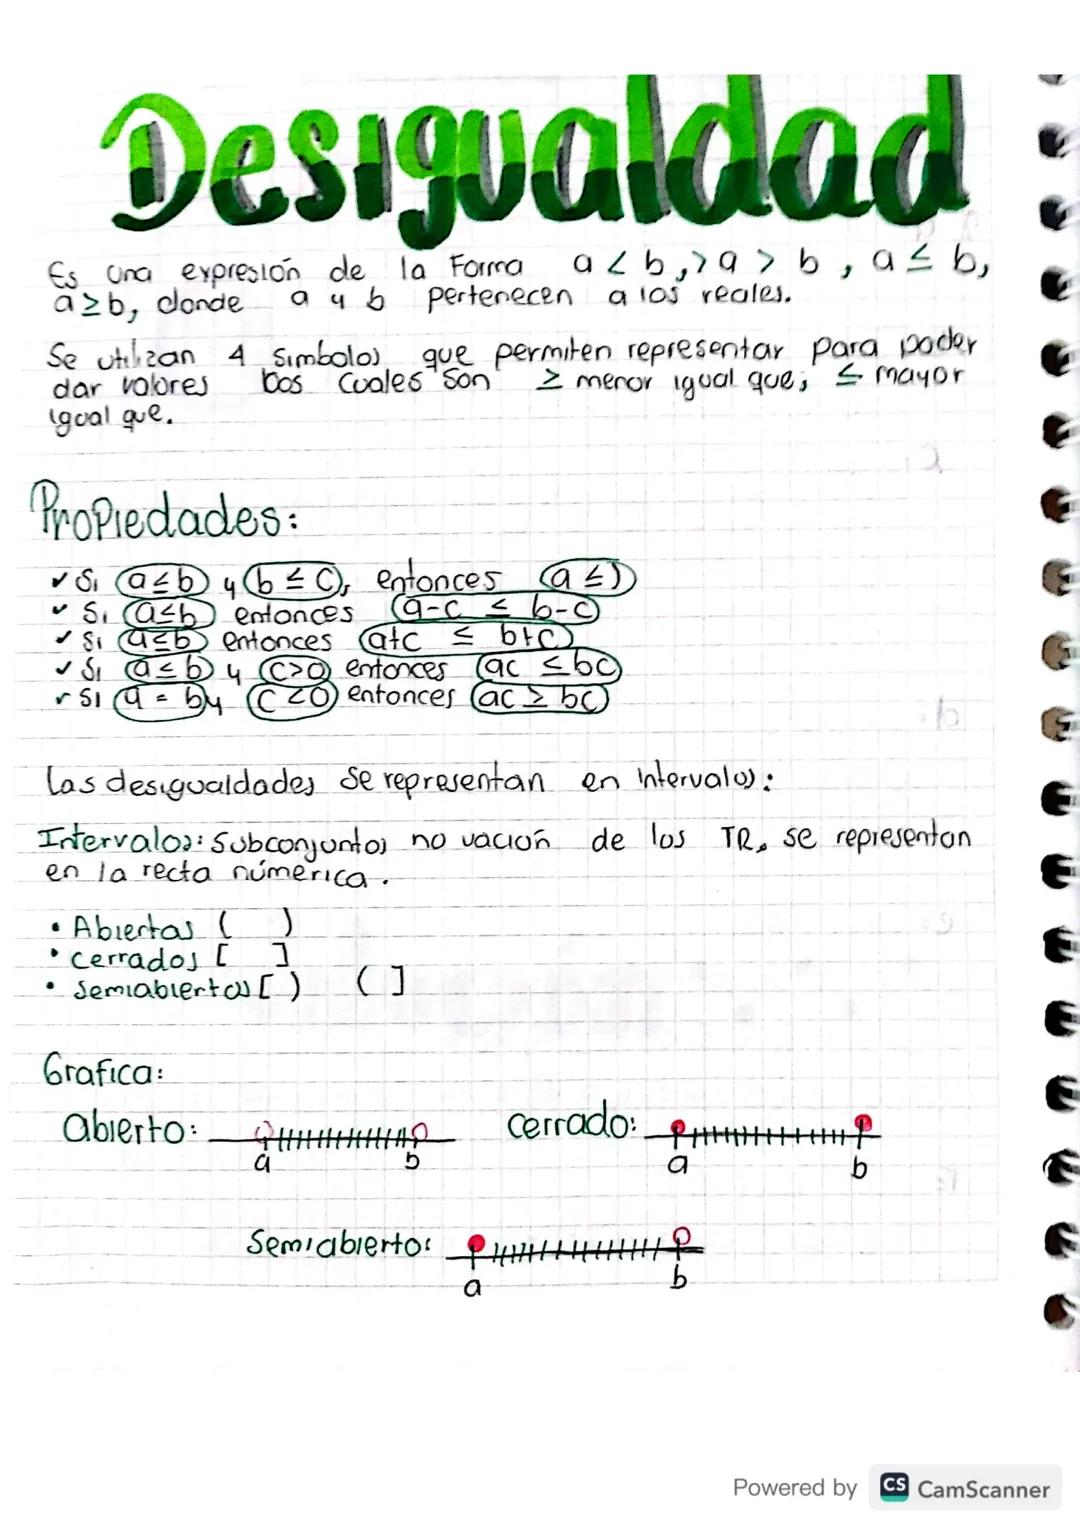 Desigualdad
Es una expresión de la Forma a < b, > a > b, a ≤ b,
a ≥ b, donde a y b pertenecen a los reales.
Se utilizan 4 simbolos que permiten representar para poder
dar valores los cuales son ≥ menor igual que; ≤ mayor
igual que.
Propiedades:
✓ Si a ≤ b y b ≤ c, entonces a ≤ )
✓ Si a ≤ b entonces a-c ≤ b-c
✓ Si a ≤ b entonces a+c ≤ b+c
✓ Si a ≤ b y c>0 entonces ac ≤ bc
r Si a = b y c<0 entonces ac ≥ bc
Las desigualdades se representan en intervalos:
Intervalos: Subconjuntos no vacion de los IR, se representan
en la recta númerica.
• Abiertas ( )
• cerrados [ ]
• Semiabiertos [ ) ( ]
Grafica:
abierto: cerrado:
a b a b
Semiabierto:
a b
Powered by CS CamScanner